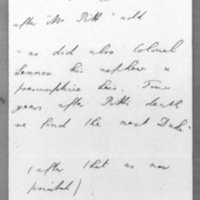 after "Mr Pitt" add
" as did also Colonel
Lennox his nephew &
presumptive heir. Four
years after Pitt's death
we find the next Duke"
(after that as now
printed)